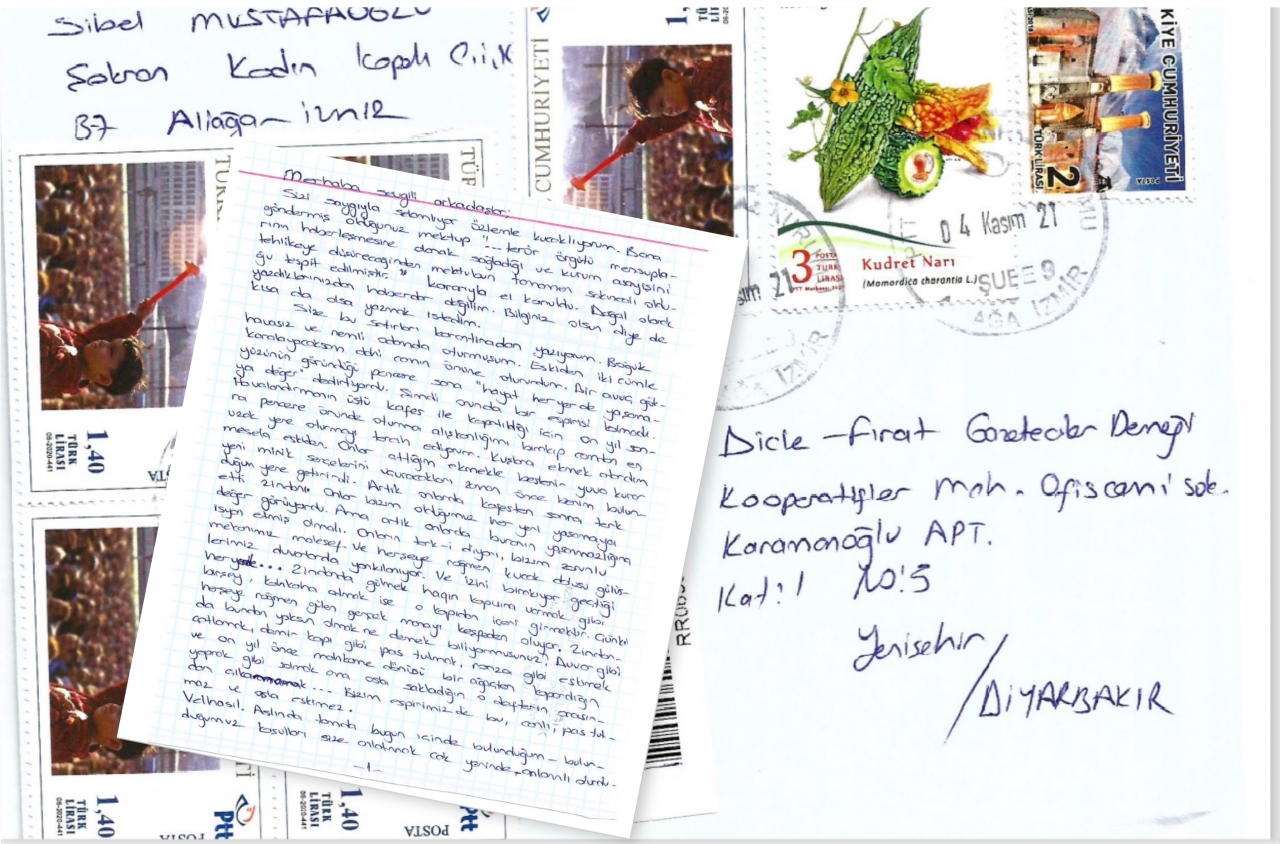 Sibel MUSTAFAOĞLU
Şakran Kadın Kapalı C.İ.K
B7 Aliağa-İzmir
Merhaba sevgili arkadaşlar;
Sizi saygıyla selamlıyor özlemle kucaklıyorum. Bana
göndermiş olduğunuz mektup "...terör örgütü mensupla-
rının haberleşmesine olanak sağladığı ve kurum asayişini
tehlikeye düşüreceğinden mektubun tamamen sakıncalı oldu-
ğu tespit edilmiştir." kararıyla el konuldu. Doğal olarak
yazdıklarınızdan haberdar değilim. Bilginiz olsun diye de
kısa da olsa yazmak istedim.
Size bu satırları karantinadan yazıyorum. Boğuk
havasız ve nemli odamda oturmuşum. Eskiden iki cümle
karalayacaksam dahi camın önüne otururdum. Bir avuç gök-
yüzünün göründüğü pencere sana "hayat her yerde yaşama-
ya değer" dedirtiyordu. Şimdi onunda bir espirisi kalmadı.
Havalandırmanın üstü kafes ile kapatıldığı için on yıl son-
ra pencere önünde oturma alışkanlığımı bırakıp camdan en
uzak yere oturmayı tercih ediyorum. Kuşlara ekmek atardım
mesela eskiden. Onlar attığım ekmekle beslenir yuva kurar
yeni minik serçelerini uçuracakları zaman önce benim bulun-
duğum yere getirirdi. Artık onlarda kafesten sonra terk
etti zindanı. Onlar bizim olduğumuz her yeri yaşamaya
değer görüyordu. Ama artık onlarda buranın yaşanmazlığına
isyan etmiş olmalı. Onların terk-i diyarı, bizim zorunlu
mekanımız malesef. Ve herşeye rağmen kucak dolusu gülüş-
lerimiz duvarlarda yankılanıyor. Ve izini bırakıyor geçtiği
her yerde... Zindanda gülmek haqın kapısına varmak gibi
birşey. Kahkaha atmak ise o kapıdan içeri girmektir. Çünkü
herşeye rağmen gülen gerçek manayı keşfeden oluyor. Zindan-
da bundan yoksun olmak ne demek biliyormusunuz? Duvar gibi
çatlamak, demir kapı gibi pas tutmak, ranza gibi eskimek
ve on yıl önce mahkeme dönüşü bir ağaçtan kopardığın
yaprak gibi solmak ama asla sakladığın o defterin arasın-
dan çıkamamak... Bizim espirimiz de bu, canlı, pas tut-
maz ve asla eskimez.
Velhasıl. Aslında tamda bugün içinde bulunduğum-bulun-
duğumuz koşulları size anlatmak çok yerinde, anlamlı olurdu.
-1-
TÜRK
TÜR
CUMHURİYETİ
1,40
TÜRK
LİRASI
06-2020-441
POSTA
1,40
TÜRK
LİRASI
06-2020-441
Ptt
POSTA
1,40
TÜRK
LİRASI
06-2020-441
POSTA
Ptt
3 POSTA
TÜRK
LİRASI
Kudret Narı
(Momordica charantia L.)
KİYE CUMHURİYETİ
POSTA
2
TÜRK LİRASI
04 Kasım 21
ŞUBE 9
AĞA İZMİR
İZMİR
Dicle-Fırat Gazeteciler Derneği
Kooperatifler Mah. Ofiscami sok.
Karamanoğlu APT.
Kat:1 NO:5
Yenişehir
/DİYARBAKIR